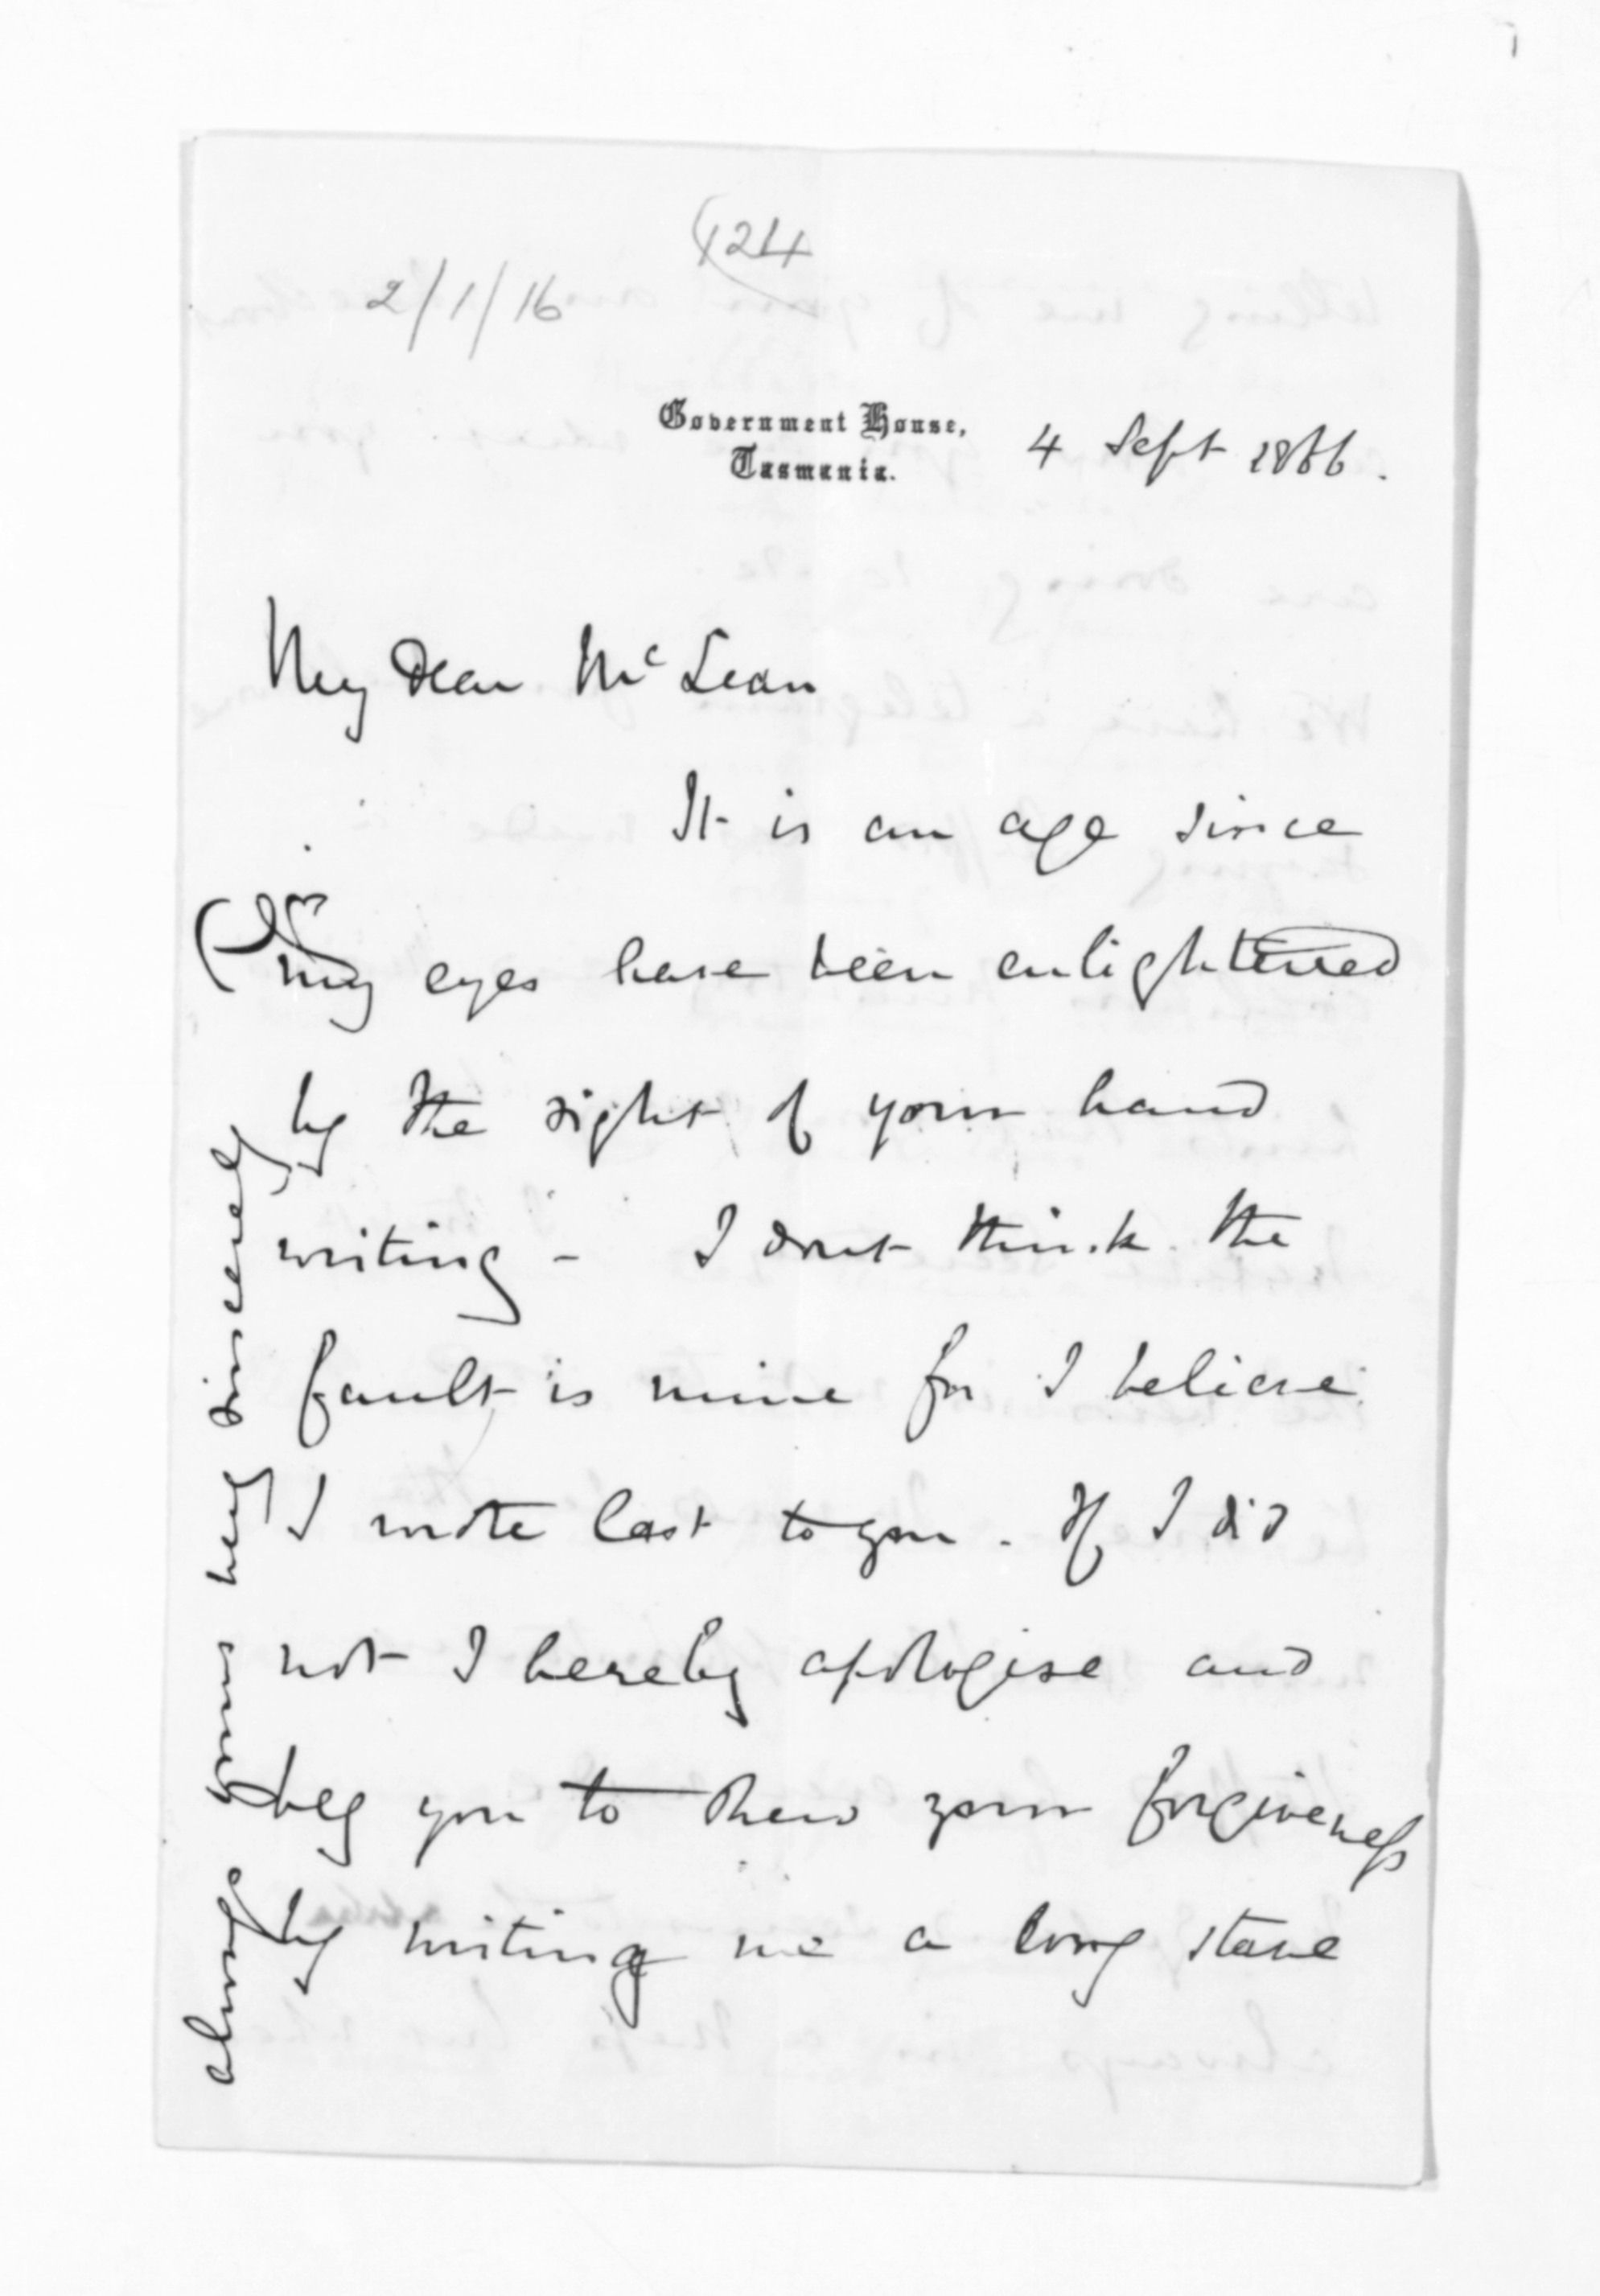 124
2/1/16
Government House,
Tasmania.
4 Sept 1866.
My Dear McLean
It is an age since
my eyes have been enlightened
by the sight of your hand
writing - I dont think the
fault is mine for I believe
I wrote last to you. If I did
not I hereby apologise and
beg you to shew your forgiveness
by writing me a long stave
always yours very sincerely